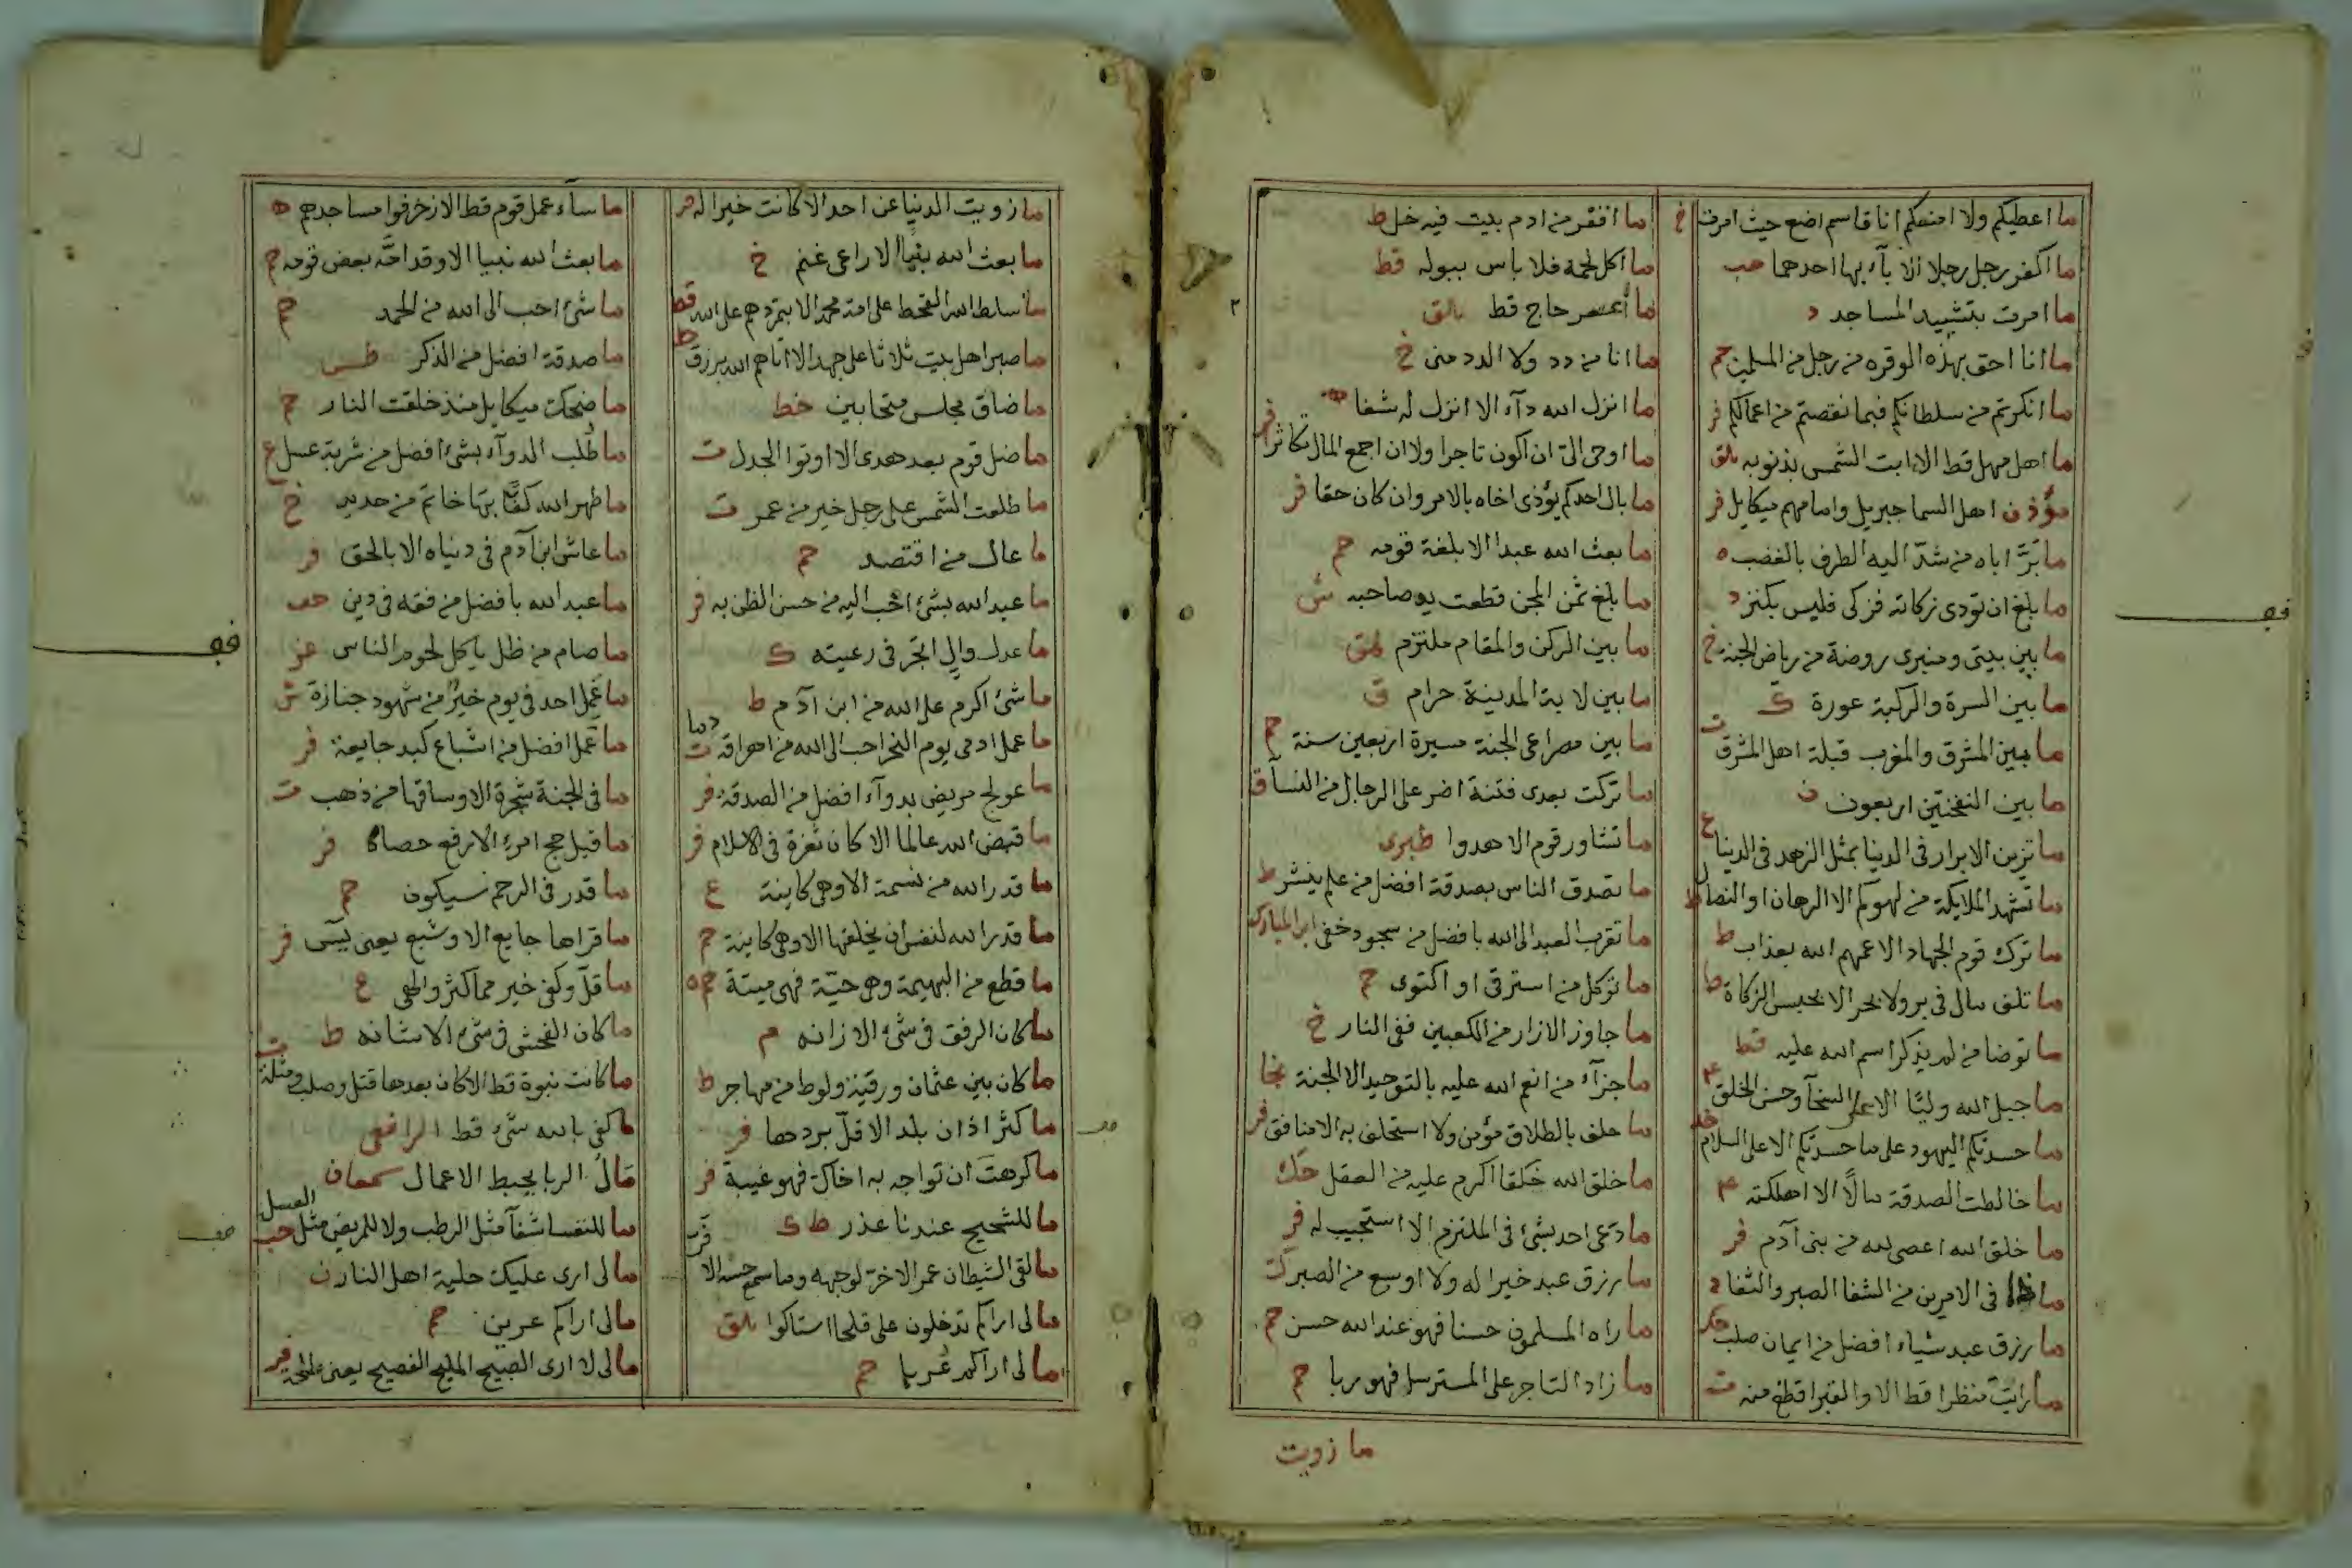 ما اعطيكم ولا امنعكم انا قاسم اضع حيث امرت خ
ما اكفر رجل رجلا الا بآء بها احدهما حب
ما امرت بتشييد المساجد د
ما انا احق بهذه الوقره من رجل من المسلمين حم
ما انكرتم من سلطانكم فبما نقصتم من اعمالكم فر
ما اهل مهل قط الا ابت الشمس بذنوبه
مؤذن اهل السما جبريل وامامهم ميكايل فر
ما بَرَّ اباه من شدّ اليه الطرف بالغضب
ما بلغ ان تودى زكاته فزكى فليس بكنز د
ما بين بيتى ومنبرى روضة من رياض الجنة خ
ما بين السرة والركبة عورة ك
ما بين المشرق والمغرب قبلة اهل المشرق ت
ما بين النفختين اربعون ن
ما تزين الابرار فى الدنيا بمثل الزهد فى الدنيا ع
ما تشهد الملايكة من لهوكم الا الرهان او النضال ط
ما ترك قوم الجهاد الا عمهم الله بعذاب ط
ما تلف مال فى بر ولا بحر الا بحبس الزكاة ط
ما توضا من لم يذكر اسم الله عليه قط
ما جبل الله وليًا الا على السخآ وحسن الخلق
ما حسدتكم اليهود على ما حسدتكم الا على السلام خد
ما خالطت الصدقة مالًا الا اهلكته
ما خلق الله اعصى لله من بنى آدم فر
ماذا فى الامرين من الشفا الصبر والثفا د
ما رزق عبد شياء افضل من ايمان صلب حك
ما رايت منظرا قط الا والقبر افظع منه ت
ما افقر من ادم بيت فيه خل ط
ما اكل لحمه فلا باس ببوله قط
ما أمعر حاج قط
ما انا من دد ولا الدد منى خ
ما انزل الله دآء الا انزل له شفا ه
ما اوحى الىّ ان اكون تاجرا ولا ان اجمع المال تكاثرا فر
ما بال احدكم يؤذى اخاه بالامر وان كان حقا فر
ما بعث الله عبدا الا بلغة قومه حم
ما بلغ ثمن المجن قطعت يد صاحبه
ما بين الركن والمقام ملتزم
ما بين لابة المدينة حرام ق
ما بين مصراعى الجنة مسيرة اربعين سنة حم
ما تركت بعدى فتنة اضر على الرجال من النسآ ق
ما تشاور قوم الا هدوا طبرى
ما تصدق الناس بصدقة افضل من علم ينشر ط
ما تقرب العبد الى الله بافضل من سجود خفى ابن المبارك
ما توكل من استرقى او اكتوى حم
ما جاوز الازار من الكعبين ففى النار خ
ما جزآء من انعم الله عليه بالتوحيد الا الجنة
ما حلف بالطلاق مؤمن ولا استحلف به الا منافق فر
ما خلق الله خَلقا اكرم عليه من العقل حك
ما دَعى احد بشئ فى الملتزم الا استجيب له فر
ما رزق عبد خيرا له ولا اوسع من الصبر ك
ما راه المسلمون حسنا فهو عند الله حسن حم
ما زاد التاجر على المسترسل فهو ربا حم
ما زويت
ما زويت الدنيا عن احد الا كانت خيرا له فر
ما بعث الله نبيا الا راعى غنم خ
ما سلط الله القحط على امة محمد الا بتمردهم على الله قط
ما صبر اهل بيت ثلاثا على جهد الا اتاهم الله برزق
ما ضاق مجلس متحابين خط
ما ضل قوم بعد هدى الا اوتوا الجدل ت
ما طلعت الشمس على رجل خير من عمر ت
ما عال من اقتصد حم
ما عبد الله بشئ احب اليه من حسن الظن به فر
ما عدل والٍ اتجر فى رعيته ك
ما شئ اكرم على الله من ابن آدم ط
ما عمل ادمى يوم النحر احب الى الله من اهراقة دما ت
ما عولج مريض بدوآء افضل من الصدقة فر
ما قبض الله عالما الا كان ثغرة فى الاسلام فر
ما قدر الله من نسمة الا وهى كاينة ع
ما قدر الله لنفس ان يخلقها الا وهى كاينة حم
ما قطع من البهيمة وهى حيّة فهى ميتة حم ه
ما كان الرفق فى شئ الا زانه م
ما كان بين عثمان ورقية ولوط من مهاجر ط
ما كثر اذان بلد الا قلّ بردها فر
ما كرهت ان تواجه به اخاك فهو غيبة فر
ما للشحيح عندنا عذر ط ك
ما لقى الشيطان عمر الا خر لوجهه وما سمع حسه الا فر
ما لى اراكم تدخلون على قلحا استاكوا
ما لى اراكم عُربا حم
ما سآء عمل قوم قط الا زخرفوا مساجدهم ه
ما بعث الله نبيا الا وقد امَّه بعض قومه حم
ما شئ احب الى الله من الحمد
ما صدقة افضل من الذكر طس
ما ضحك ميكايل منذ خلقت النار حم
ما طُلب الدوآء بشئ افضل من شربة عسل ع
ما طهر الله كفًّا بها خاتم من حديد خ
ما عاش ابن آدم فى دنياه الا بالحق فر
ما عبد الله بافضل من فقه فى دين هب
ما صام من ظل ياكل لحوم الناس فر
ما عمل احد فى يوم خيرٌ من شهود جنازة
ما عمل افضل من اشباع كبد جايعة فر
ما فى الجنة شجرة الا وساقها من ذهب ت
ما قبل حج امرئ الا رفع حصاه فر
ما قدر فى الرحم سيكون حم
ما قراها جايع الا وشبع يعنى يسٓ فر
ما قلّ وكفى خير مما كثر والهى ع
ما كان الفحش فى شئ الا شانه ط
ما كانت نبوة قط الا كان بعدها قتل وصلب ومثلة
ما كفى بالله شئ قط الرافعى
مَالُ الربا يحبط الاعمال سمعان
ما للنفسا شفآ مثل الرطب ولا للمريض مثل العسل
ما لى ارى عليك حلية اهل النار ن
ما لى اراكم عزين حم
ما لى لا ارى الصبيح المليح الفصيح يعنى فر